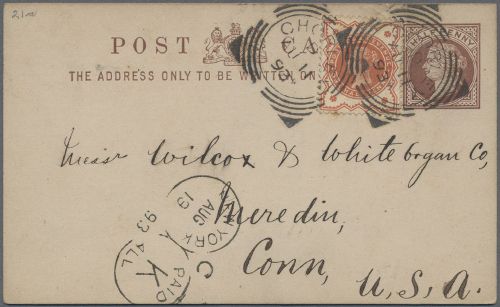 21
POST CA
THE ADDRESS ONLY TO BE WRITTEN ON
HALFPENNY
CHO
93
Messr Wilcox & White Organ Co,
Meredin,
Conn,
U.S.A.
YORK
AUG
19
93
PAID
K
ALL